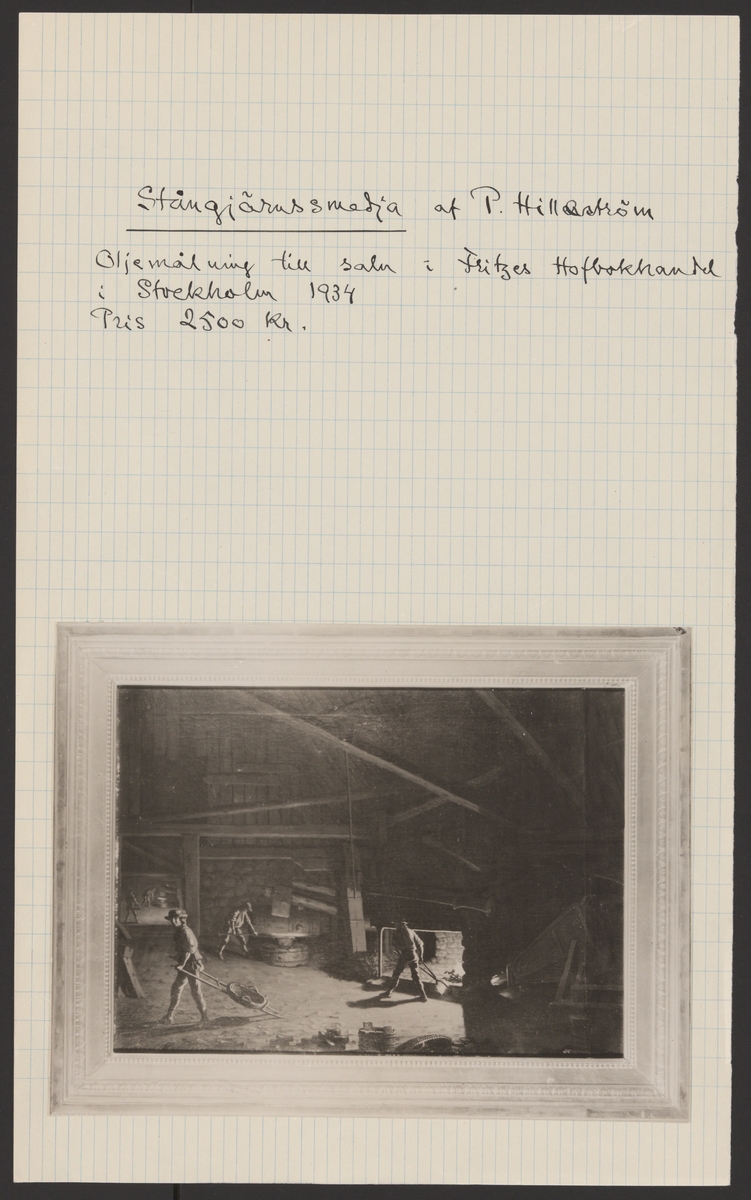 Stångjärnssmedja af P. Hilleström
Oljemålning till salu i Fritzes Hofbokhandel
i Stockholm 1934
Pris 2500 Kr.